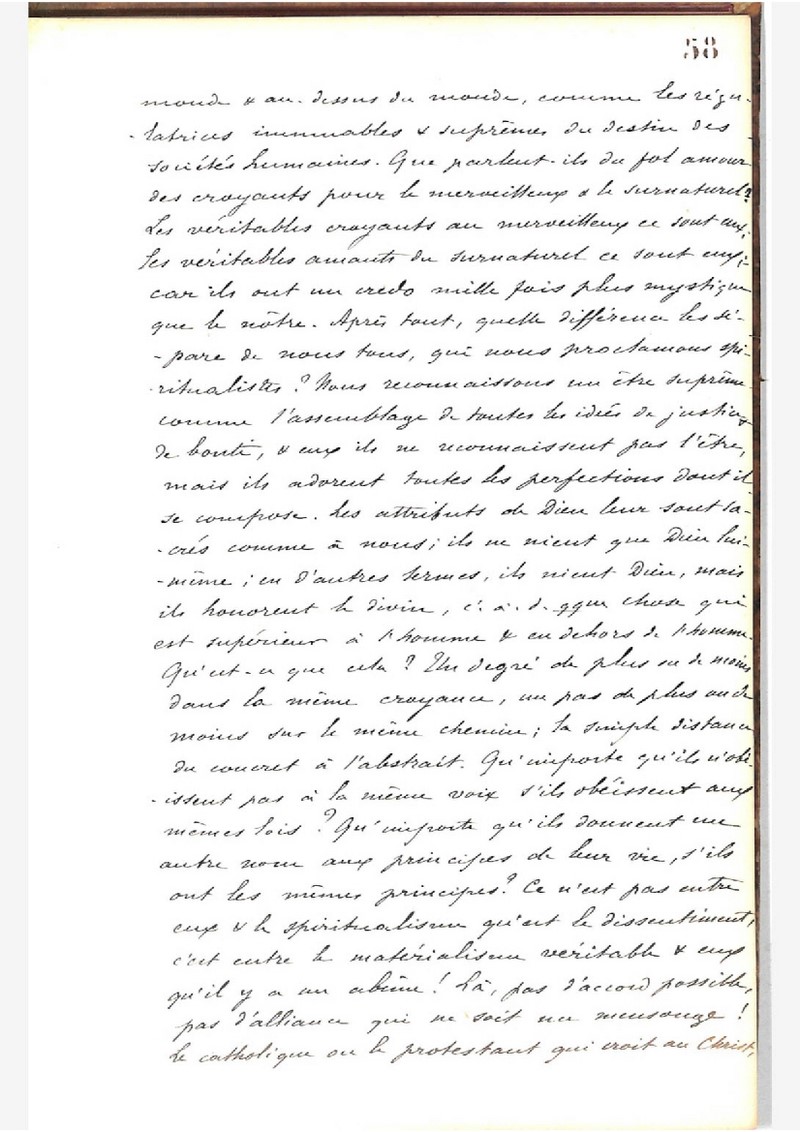 58
monde & au-dessus du monde, comme les régu-
-latrices immuables & suprêmes du destin des
sociétés humaines. Que parlent-ils du fol amour
des croyants pour le merveilleux & le surnaturel?
Les véritables croyants au merveilleux ce sont eux;
les véritables amants du surnaturel ce sont eux;
car ils ont un credo mille fois plus mystique
que le nôtre. Après tout, quelle différence les sé-
-pare de nous tous, qui nous proclamons spi-
-ritualistes? Nous reconnaissons un être suprême
comme l'assemblage de toutes les idées de justice,
de bonté, & eux ils ne reconnaissent pas l'être,
mais ils adorent toutes les perfections dont il
se compose. Les attributs de Dieu leur sont sa-
-crés comme à nous; ils ne nient que Dieu lui-
-même; en d'autres termes, ils nient Dieu, mais
ils honorent le divin, c. à. d. qque chose qui
est supérieur à l'homme & en dehors de l'homme.
Qu'est-ce que cela? Un degré de plus ou de moins
dans la même croyance, un pas de plus ou de
moins sur le même chemin; la simple distance
du concret à l'abstrait. Qu'importe qu'ils n'obé-
-issent pas à la même voix s'ils obéissent aux
mêmes lois? Qu'importe qu'ils donnent un
autre nom aux principes de leur vie, s'ils
ont les mêmes principes? Ce n'est pas entre
eux & le spiritualisme qu'est le dissentiment,
c'est entre le matérialisme véritable & eux
qu'il y a un abîme! Là, pas d'accord possible,
pas d'alliance qui ne soit un mensonge!
Le catholique ou le protestant qui croit au Christ,